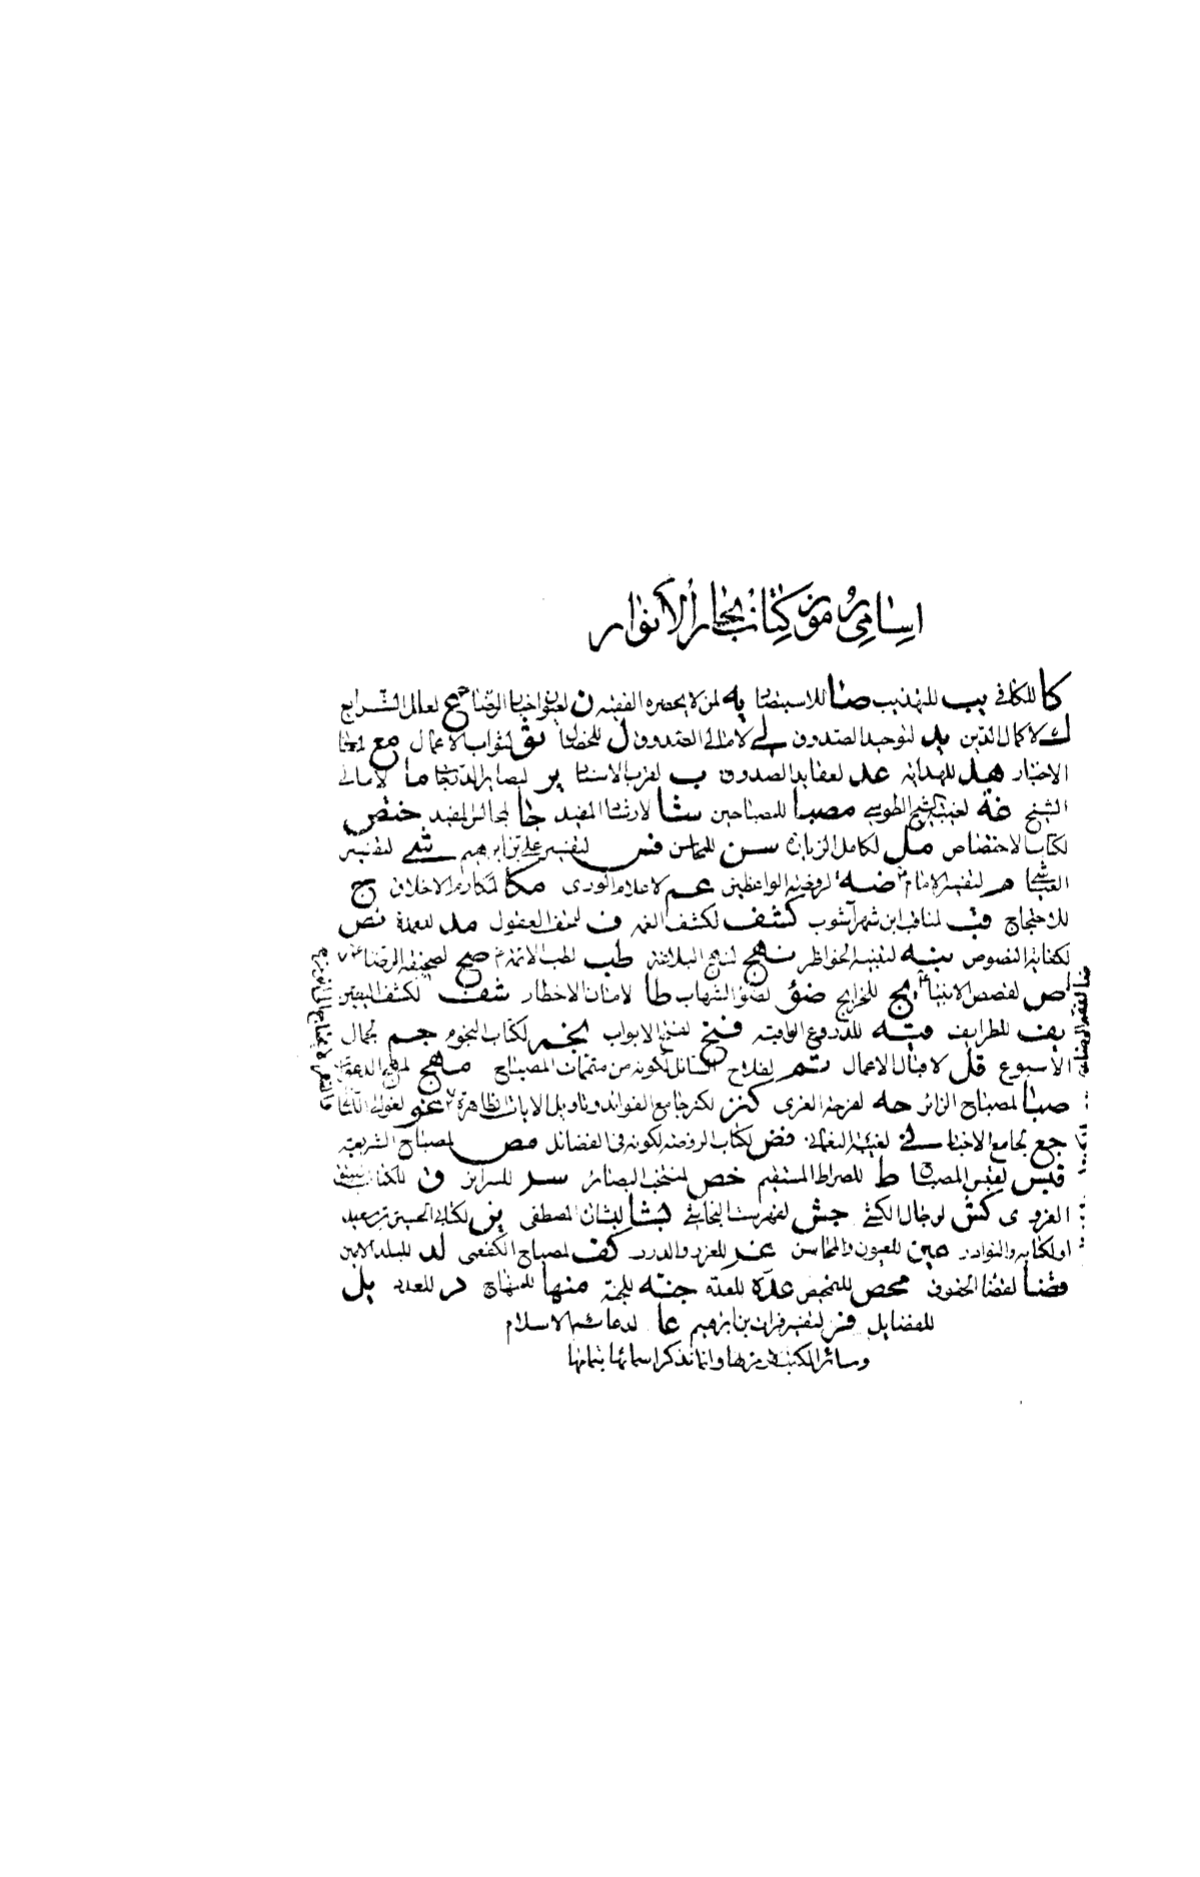 اسامی رموز کتاب بحار الأنوار
کا للکافی یب للتهذیب صا للاستبصار یه لمن لا یحضره الفقیه ن لعیون اخبار الرضا ع لعلل الشرایع
ك لاکمال الدین ید لتوحید الصدوق لی لامالی الصدوق ل للخصال ثو لثواب الاعمال مع لمعانی
الاخبار هد للهدایة عد لعقاید الصدوق ب لقرب الاسناد یر لبصایر الدرجات ما لامالی
الشیخ غة لغیبة الشیخ الطوسی مصبا للمصباحین شا لارشاد المفید جا لمجالس المفید ختص
لکتاب الاختصاص مل لکامل الزیارة سن للمحاسن فس لتفسیر علی بن ابرهیم شی لتفسیر
العیاشی م لتفسیر الامام ضه لروضة الواعظین عم لاعلام الوری مکا لمکارم الاخلاق ج
للاحتجاج قب لمناقب ابن شهرآشوب کشف لکشف الغمه ف لتحف العقول مد للعمدة نص
لکفایة النصوص نبه لتنبیه الخواطر نهج لنهج البلاغه طب لطب الائمة صح لصحیفة الرضا
ص لقصص الانبیا یج للخرایج ضوء لضوء الشهاب طا لامان الاخطار شف لکشف الیقین
یف للطرایف قیه للدروع الواقیه فتح لفتح الابواب نجم لکتاب النجوم جم لجمال
الاسبوع قل لاقبال الاعمال تم لفلاح السائل لکونه من متممات المصباح مهج لمهج الدعوات
صبا لمصباح الزائر حه لفرحة الغری کنز لکنز جامع الفواید و تاویل الایات الظاهرة غو لغوالی اللئالی
جع لجامع الاخبار نی لغیبة النعمانی فض لکتاب الروضه لکونه فی الفضائل مص لمصباح الشریعه
قبس لقبس المصباح ط للصراط المستقیم خص لمنتخب البصائر سر للسرایر ق للکتاب العتیق
الغروی کش لرجال الکشی جش لفهرست النجاشی بشا لبشارة المصطفی ین لکتابی الحسین بن سعید
او لکتابه والنوادر عین للعیون والمحاسن غر للغرر والدرر کف لمصباح الکفعمی لد للبلد الامین
قضا لقضا الحقوق محص للتمحیص عدة للعدة جنة للجنة منها للمنهاج د للعدد یل
للفضایل فر لتفسیر فرات بن ابرهیم عا لدعائم الاسلام
وسائر الکتب لا رمز لها وانما نذکر اسمائها بتمامها
ضا لفقه الرضا